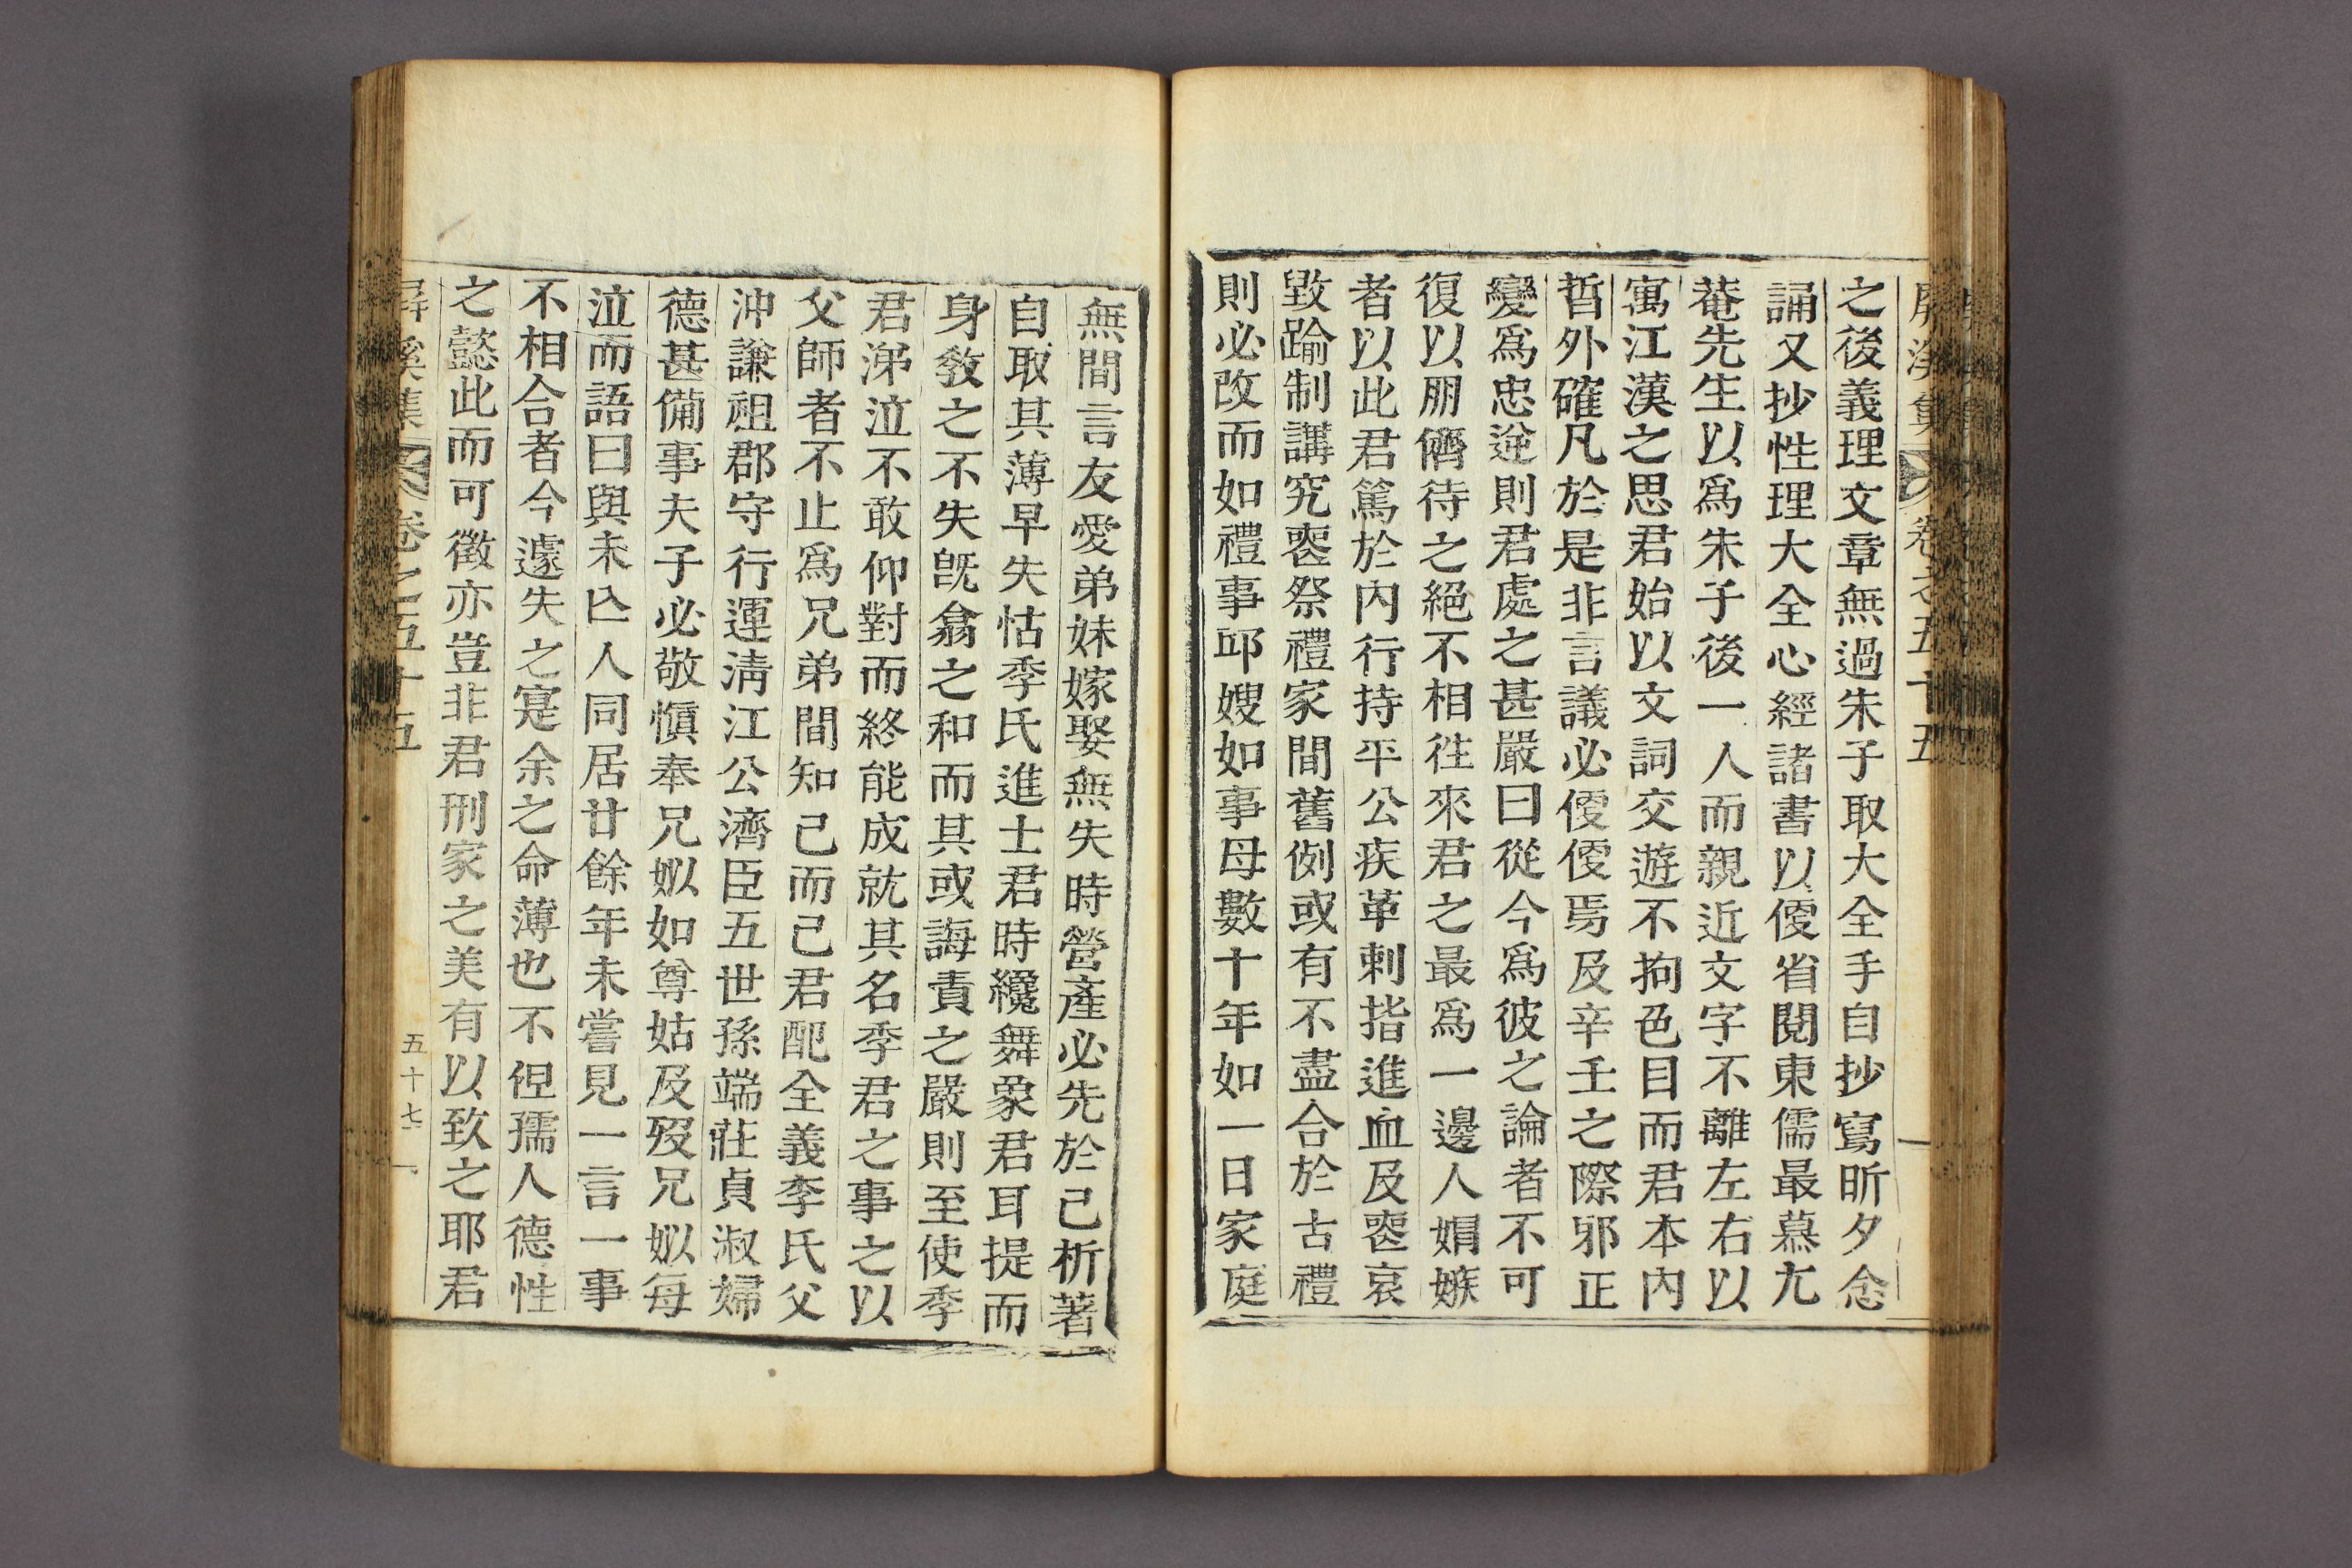 屛溪集 卷之五十五
之後義理文章無過朱子取大全手自抄寫昕夕念
誦又抄性理大全心經諸書以便省閱東儒最慕尤
菴先生以爲朱子後一人而親近文字不離左右以
寓江漢之思君始以文詞交遊不拘色目而君本內
哲外確凡於是非言議必侃侃焉及辛壬之際邪正
變爲忠逆則君處之甚嚴曰從今爲彼之論者不可
復以朋儕待之絕不相往來君之最爲一邊人娼嫉
者以此君篤於內行持平公疾革刺指進血及喪哀
毀踰制講究喪祭禮家間舊例或有不盡合於古禮
則必改而如禮事邱嫂如事母數十年如一日家庭
無間言友愛弟妹嫁娶無失時營產必先於己析著
自取其薄早失怙季氏進士君時纔舞象君耳提而
身敎之不失旣翕之和而其或誨責之嚴則至使季
君涕泣不敢仰對而終能成就其名季君之事之以
父師者不止爲兄弟間知己而已君配全義李氏父
沖謙祖郡守行運淸江公濟臣五世孫端莊貞淑婦
德甚備事夫子必敬愼奉兄姒如尊姑及歿兄姒每
泣而語曰與未亾人同居廿餘年未嘗見一言一事
不相合者今遽失之寔余之命薄也不但孺人德性
之懿此而可徵亦豈非君刑家之美有以致之耶君
屛溪集 卷之五十五 五十七